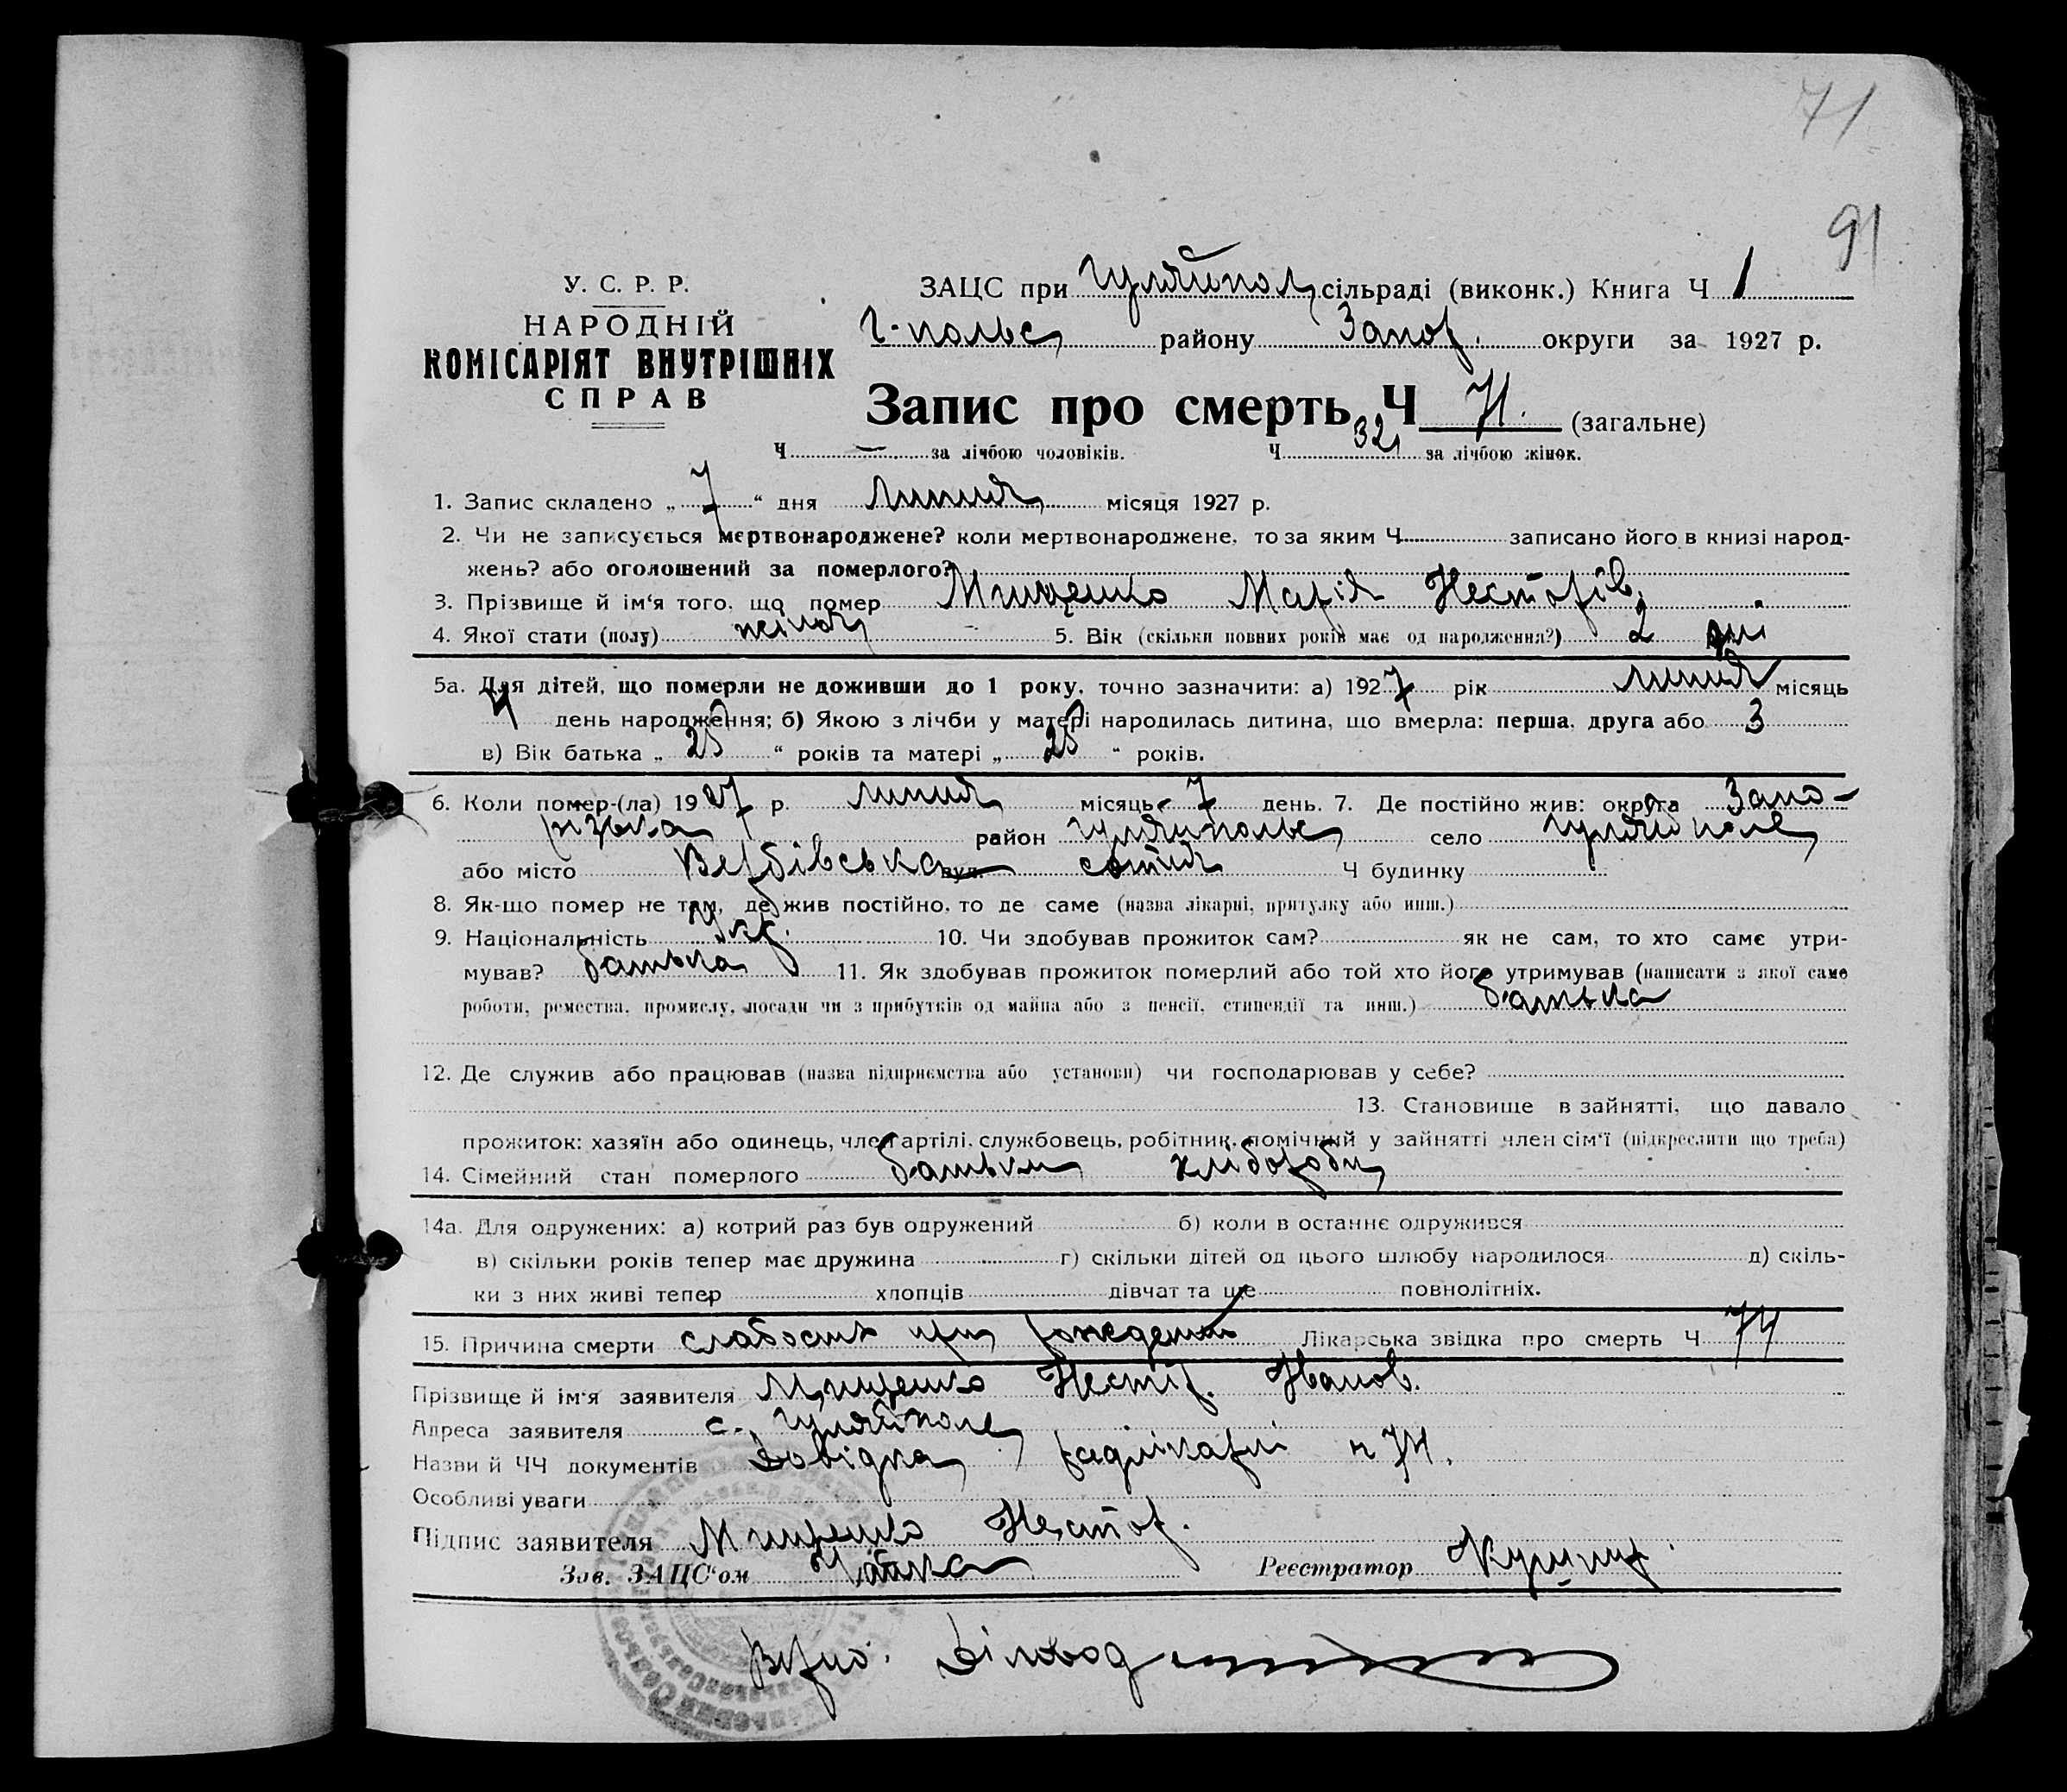 71
91
У. С. Р. Р.
НАРОДНІЙ
КОМІСАРІЯТ ВНУТРІШНІХ
СПРАВ
ЗАЦС при Гуляйпол сільраді (виконк.) Книга Ч 1
Г-польс району Запор. округи за 1927 р.
Запис про смерть Ч 71. (загальне)
Ч — за лічбою чоловіків. Ч 32 за лічбою жінок.
1. Запис складено „ 7 “ дня липня місяця 1927 р.
2. Чи не записується мертвонароджене? коли мертвонароджене, то за яким Ч записано його в книзі народ-
жень? або оголошений за померлого?
3. Прізвище й ім‘я того, що помер Мищенко Марія Несторів.
4. Якої стати (полу) жіноч 5. Вік (скільки повних років має од народження?) 2 дні
5а. Для дітей, що померли не доживши до 1 року, точно зазначити: а) 1927 рік липня місяць
4 день народження; б) Якою з лічби у матері народилась дитина, що вмерла: перша, друга або 3
в) Вік батька „ 25 “ років та матері „ 25 “ років.
6. Коли помер-(ла) 1927 р. липня місяць 7 день. 7. Де постійно жив: округа Запо-
різька район Гуляйпольс село Гуляйполе
або місто Вербівська вул. сотня Ч будинку
8. Як-що помер не там, де жив постійно, то де саме (назва лікарні, притулку або инш.)
9. Національність Укр. 10. Чи здобував прожиток сам? як не сам, то хто саме утри-
мував? батька 11. Як здобував прожиток померлий або той хто його утримував (написати з якої саме
роботи, ремества, промислу, посади чи з прибутків од майна або з пенсії, стипендії та инш.) батька
12. Де служив або працював (назва підприємства або установи) чи господарював у себе?
13. Становище в зайнятті, що давало
прожиток: хазяїн або одинець, член артілі, службовець, робітник, помічний у зайнятті член сім‘ї (підкреслити що треба)
14. Сімейний стан померлого батьки хлібороби
14а. Для одружених: а) котрий раз був одружений б) коли в останнє одружився
в) скільки років тепер має дружина г) скільки дітей од цього шлюбу народилося д) скіль-
ки з них живі тепер хлопців дівчат та ще повнолітніх.
15. Причина смерти слабость при рождении Лікарська звідка про смерть Ч 74
Прізвище й ім‘я заявителя Мищенко Нестір. Иванов.
Адреса заявителя с. Гуляйполе
Назви й ЧЧ документів Довідка райлікарні н 74.
Особливі уваги
Підпис заявителя Мищенко Нестор.
Зав. ЗАЦС‘ом Реєстратор
Верно: Діловод